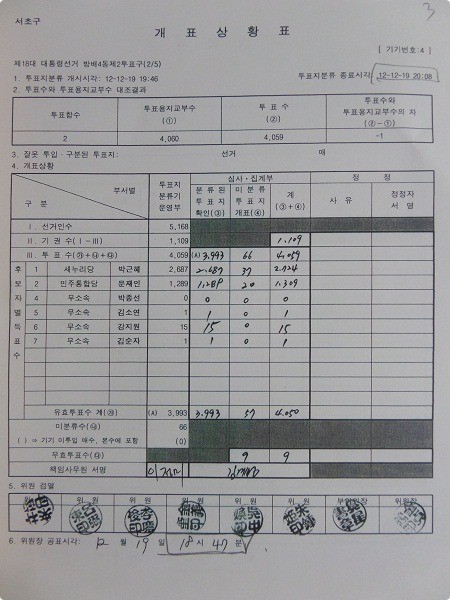 서초구
3
개 표 상 황 표
[ 기기번호:4 ]
제18대 대통령선거 방배4동제2투표구(2/5)
1. 투표지분류 개시시각: 12-12-19 19:46 투표지분류 종료시각: 12-12-19 20:08
2. 투표수와 투표용지교부수 대조결과
투표함수 투표용지교부수 (①) 투 표 수 (②) 투표수와 투표용지교부수의 차 (②-①)
2 4,060 4,059 -1
3. 잘못 투입·구분된 투표지: 선거 매
4. 개표상황
구 분 부서별 투표지 분류기 운영부 심사·집계부 정 정
분류된 투표지 확인(③) 미분류 투표지 개표(④) 계 (③+④) 사 유 정정자 서 명
Ⅰ. 선거인수 5,168
Ⅱ. 기 권 수 (Ⅰ-Ⅲ) 1,109 1.109
Ⅲ. 투 표 수 4,059 (A) 3.993 66 4.059
후보자별득표수
1 새누리당 박근혜 2,687 2.687 37 2.724
2 민주통합당 문재인 1,289 1.289 20 1.309
4 무소속 박종선 0 0 0 0
5 무소속 김소연 1 1 0 1
6 무소속 강지원 15 15 0 15
7 무소속 김순자 1 1 0 1
유효투표수 계 (A) 3,993 3.993 57 4.050
미분류수 66
( ) ⇒ 기기 이투입 매수, 본수에 포함 (0)
무효투표수 9 9
책임사무원 서명
5. 위원 검열
위 원 위 원 위 원 위 원 위 원 위 원 부위원장 위원장
6. 위원장 공표시각: 12 월 19 일 18 시 47 분